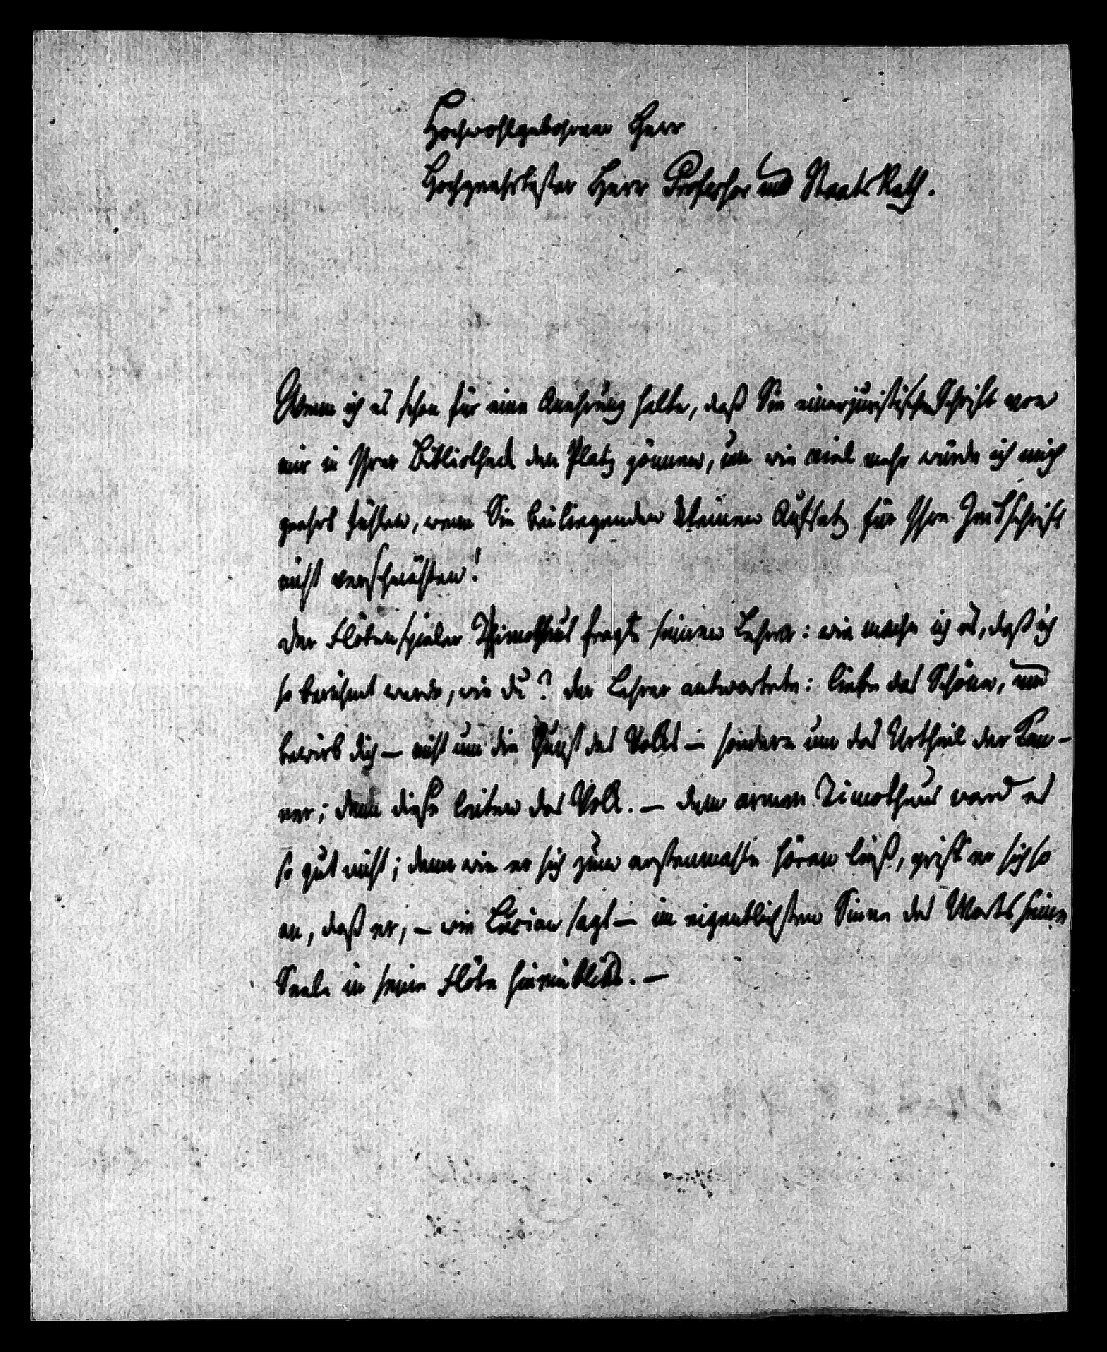 Hochwohlgebohrner Herr
Hochgeehrtester Herr Professor und Staats Rath.
Wenn ich es schon für eine Anehrung halte, daß Sie einer juristischen Schrift von
mir in Ihrer Bibliotheck den Platz gönnen, um wie viel mehr würde ich mich
geehrt fühlen, wenn Sie beiliegenden kleinen Aufsatz für Ihre Zeitschrift
nicht verschmähten!
Der Flötenspieler Thimotheus fragte seinen Lehrer: wie mache ich es, daß ich
so berühmt werde, wie du? der Lehrer antwortete: liebe das Schöne, und
bewirb dich – nicht um die Gunst des Volks – sondern um das Urtheil der Ken-
ner; denn diese leiten das Volk. – Dem armen Timotheus ward es
so gut nicht; denn wie er sich zum erstenmahle hören ließ, griff er sich so
an, daß er, – wie Lucian sagt – im eigentlichsten Sinne des Worts seine
Seele in seine Flöte hineinblies. –